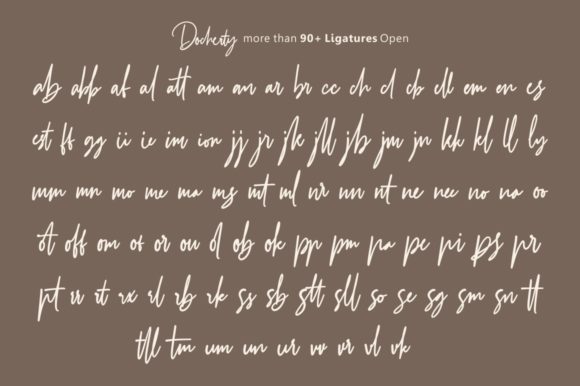 Docherty more than 90+ Ligatures Open
ab abb af al att am an ar br cc ch cl cb cll em en es
est ff gg ii ie im ion jj jr jk jll jb jm jn kk kl ll ly
mm mn mo me ma ms mt ml nr nn nt ne nee no na oo
ot off om os or ou ol ob ok pp pm pa pe pi ps pr
pt rr rt rx rl rb rk ss sb stt sll so se sg sm sn tt
tll tm um un ur vv vr vl vk